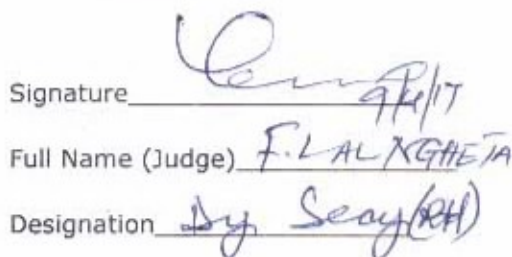 Signature
Full Name (Judge) F. LALNGHETA
Designation Dy. Secy (RH)